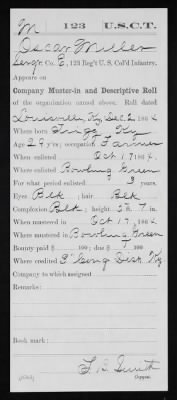 M 123 U.S.C.T.
Oscar Miller
Serg't, Co. E, 123 Reg't U. S. Col'd Infantry.
Appears on
Company Muster-in and Descriptive Roll
of the organization named above. Roll dated
Louisville, Ky, Dec 2, 1864
Where born Trigg Ky
Age 29 y'rs; occupation Farmer
When enlisted Oct 17, 1864
Where enlisted Bowling Green
For what period enlisted 3 years.
Eyes Blk; hair Blk
Complexion Blk; height 5 ft. 7 in.
When mustered in Oct 17, 1864
Where mustered in Bowling Green
Bounty paid $ 100; due $ 100
Where credited 3" Cong Dist, Ky
Company to which assigned
Remarks:
Book mark:
Smith
Copyist.